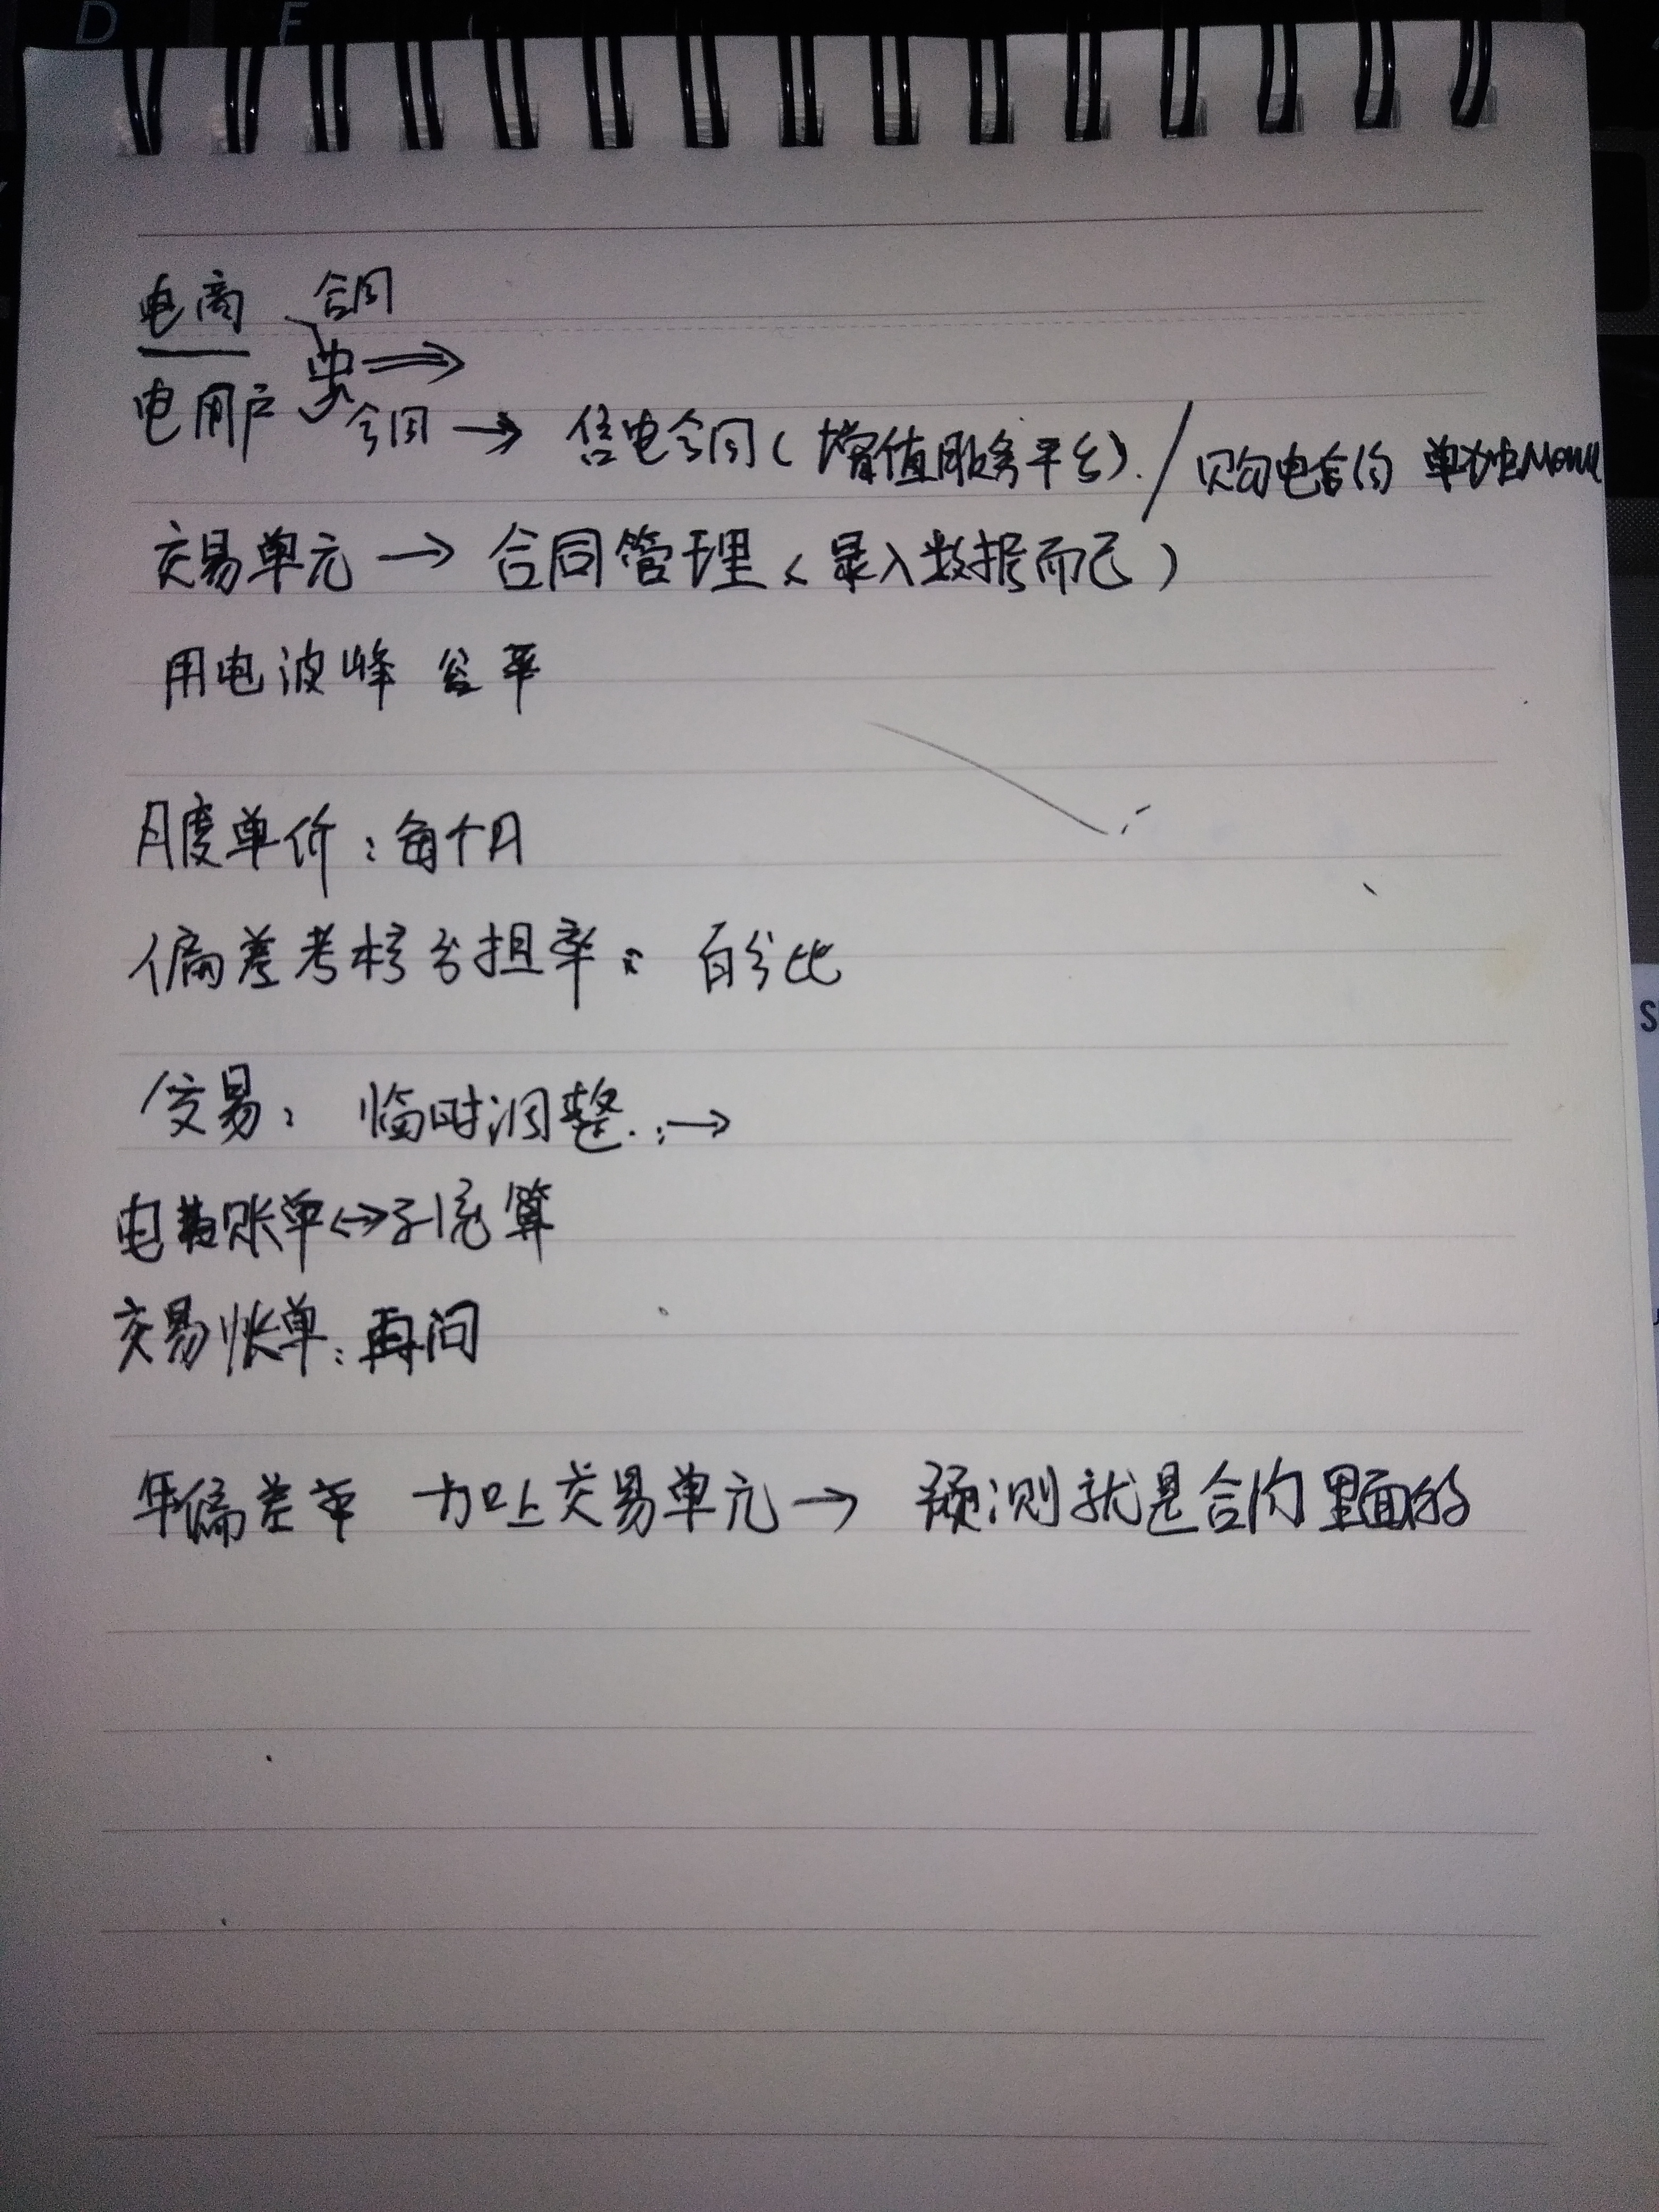 电商 合同
电用户 合同 → 售电合同(增值服务平台). / 购电合约 单独Menu
交易单元 → 合同管理(录入数据而已)
用电波峰 谷 平
月度单价:每个月
偏差考核分担率: 百分比
交易: 临时调整.:→
电费账单↔系统算
交易帐单:再问
年偏差率 加上交易单元→ 预测就是合约里面的